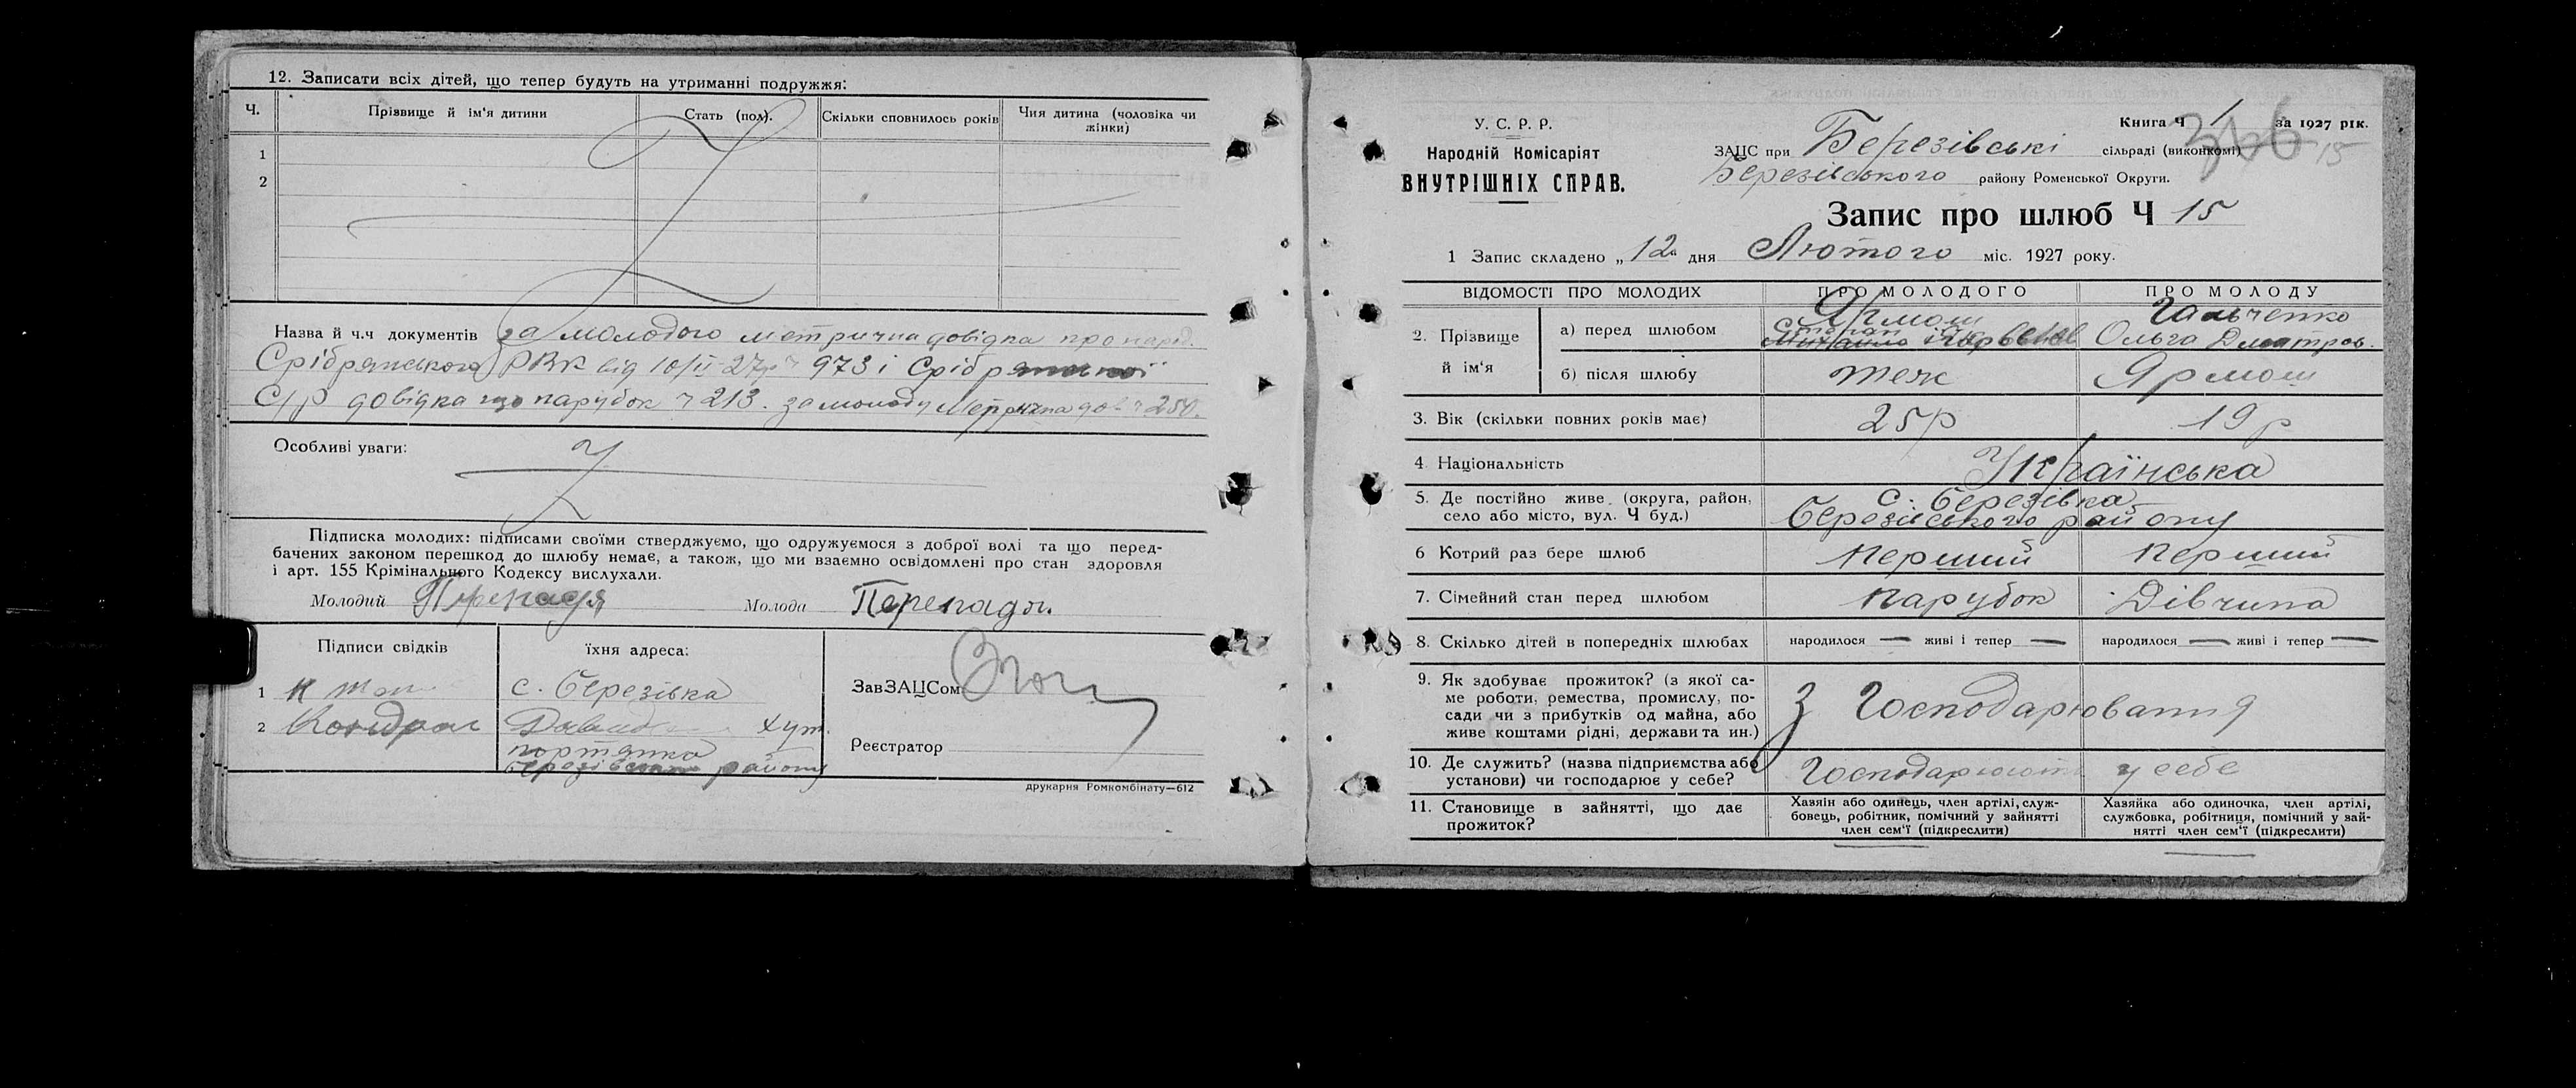 12. Записати всіх дітей, що тепер будуть на утриманні подружжя:
Ч.
Прізвище й ім'я дитини
Стать (пол).
Скільки сповнилось років
Чия дитина (чоловіка чи жінки)
1
2
Назва й ч.ч документів за молодого метрична довідка про народ.
Срібрянського РВК від 10/II-27р ч 973 і Срібрянської
С/р довідка що парубок ч 213. за молоду Метрична дов. ч 250.
Особливі уваги:
Підписка молодих: підписами своїми стверджуємо, що одружуємося з доброї волі та що перед-
бачених законом перешкод до шлюбу немає, а також, що ми взаємно освідомлені про стан здоровля
і арт. 155 Крімінального Кодексу вислухали.
Молодий Перепадя Молода Перепадя.
Підписи свідків
їхня адреса:
1 с. Березівка
ЗавЗАЦСом
2 Кондрат хут.
портянка
Березівськ району
Реєстратор
друкарня Ромкомбінату—612
У. С. Р. Р.
Народній Комісаріят
ВНУТРІШНІХ СПРАВ.
Книга Ч 1 за 1927 рік.
ЗАЦС при Березівські сільраді (виконкомі)
15
Березівського району Роменської Округи.
Запис про шлюб Ч 15
1 Запис складено „12 дня Лютого міс. 1927 року.
ВІДОМОСТІ ПРО МОЛОДИХ
ПРО МОЛОДОГО
ПРО МОЛОДУ
2. Прізвище й ім'я
а) перед шлюбом
Ярмош
Степан
Гальченко
Ольга Дмитров.
б) після шлюбу
теж
Ярмош
3. Вік (скільки повних років має)
25р
19р
4. Національність
Українська
5. Де постійно живе (округа, район,
село або місто, вул. Ч буд.)
с. Березівка
Березівського району
6 Котрий раз бере шлюб
Перший
Перший
7. Сімейний стан перед шлюбом
Парубок
Дівчина
8. Скілько дітей в попередніх шлюбах
народилося — живі і тепер —
народилося — живі і тепер —
9. Як здобуває прожиток? (з якої са-
ме роботи, ремества, промислу, по-
сади чи з прибутків од майна, або
живе коштами рідні, держави та ин.)
З Господарювання
10. Де служить? (назва підприємства або
установи) чи господарює у себе?
Господарюють у себе
11. Становище в зайнятті, що дає
прожиток?
Хазяін або одинець, член артілі, служ-
бовець, робітник, помічний у зайнятті
член сем'ї (підкреслити)
Хазяйка або одиночка, член артілі,
службовка, робітниця, помічний у зай-
нятті член сем'ї (підкреслити)